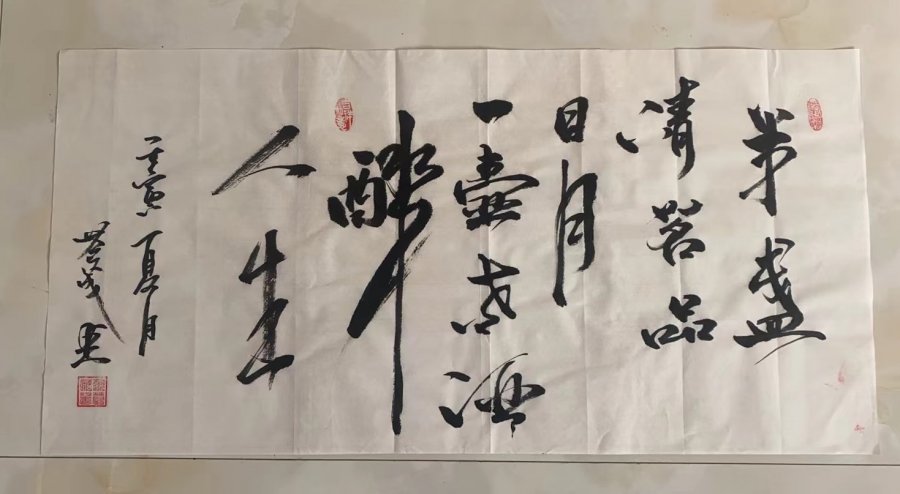 半盞
清茗品
日月
一壺老酒
醉
人生
壬寅夏月
茂書